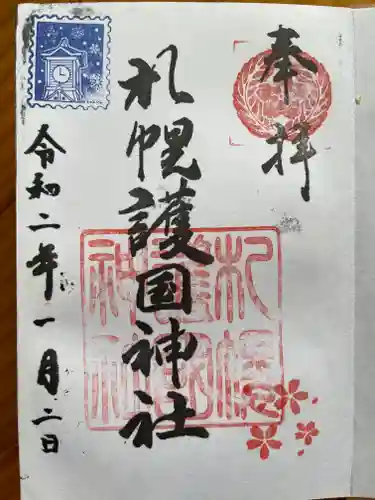 奉拝
札幌護国神社
令和二年一月二日
札幌
護国
神社